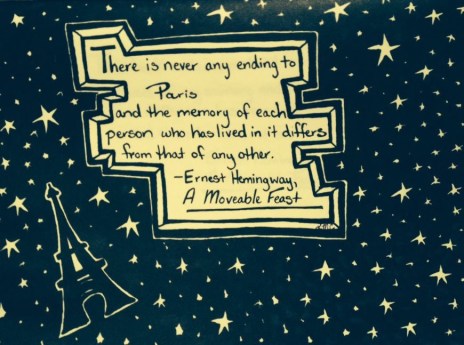 There is never any ending to
Paris
and the memory of each
person who has lived in it differs
from that of any other.
-Ernest Hemingway,
A Moveable Feast